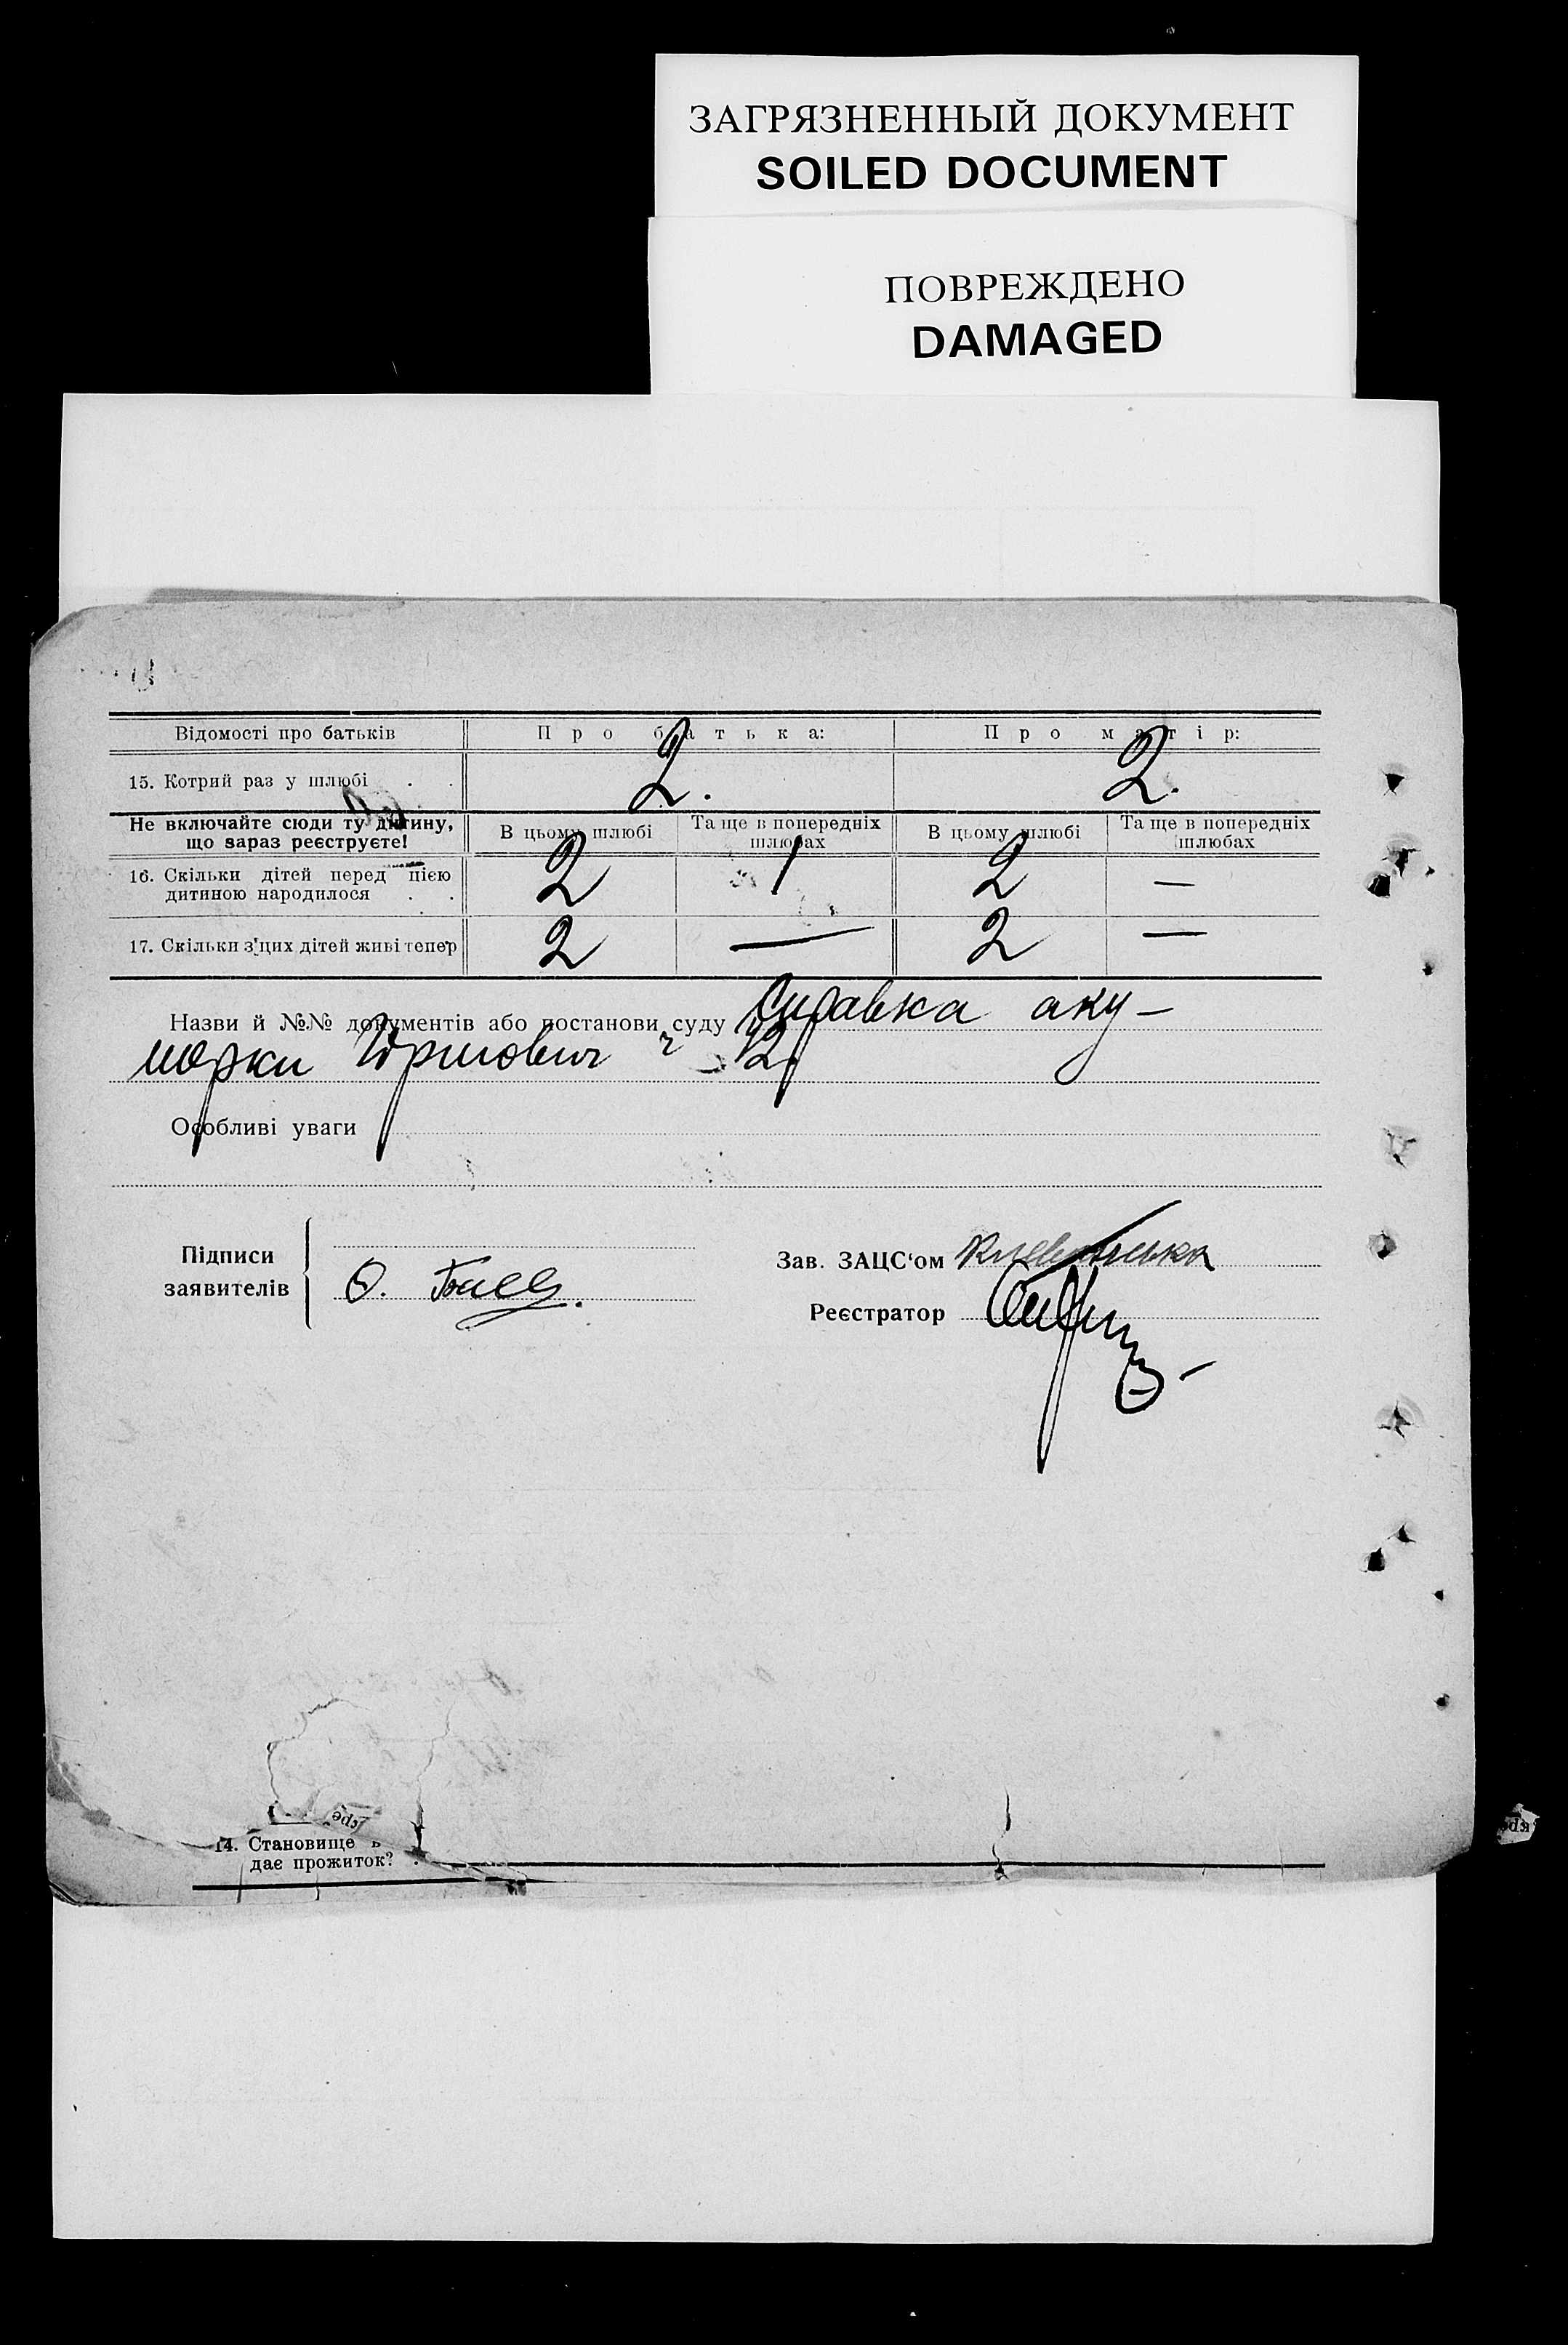 ЗАГРЯЗНЕННЫЙ ДОКУМЕНТ
SOILED DOCUMENT
ПОВРЕЖДЕНО
DAMAGED
Відомості про батьків Про батька: Про матір:
15. Котрий раз у шлюбі . . 2. 2.
Не включайте сюди ту дитину, що зараз реєструєте! В цьому шлюбі Та ще в попередніх шлюбах В цьому шлюбі Та ще в попередніх шлюбах
16. Скільки дітей перед цією дитиною народилося . . 2 1 2 —
17. Скільки з'цих дітей живі тепер 2 — 2 —
Назви й №№ документів або постанови суду Справка аку-
шорки
Особливі уваги
Підписи
заявителів
О.
Зав. ЗАЦС'ом
Реєстратор
14. Становище в
дає прожиток? .